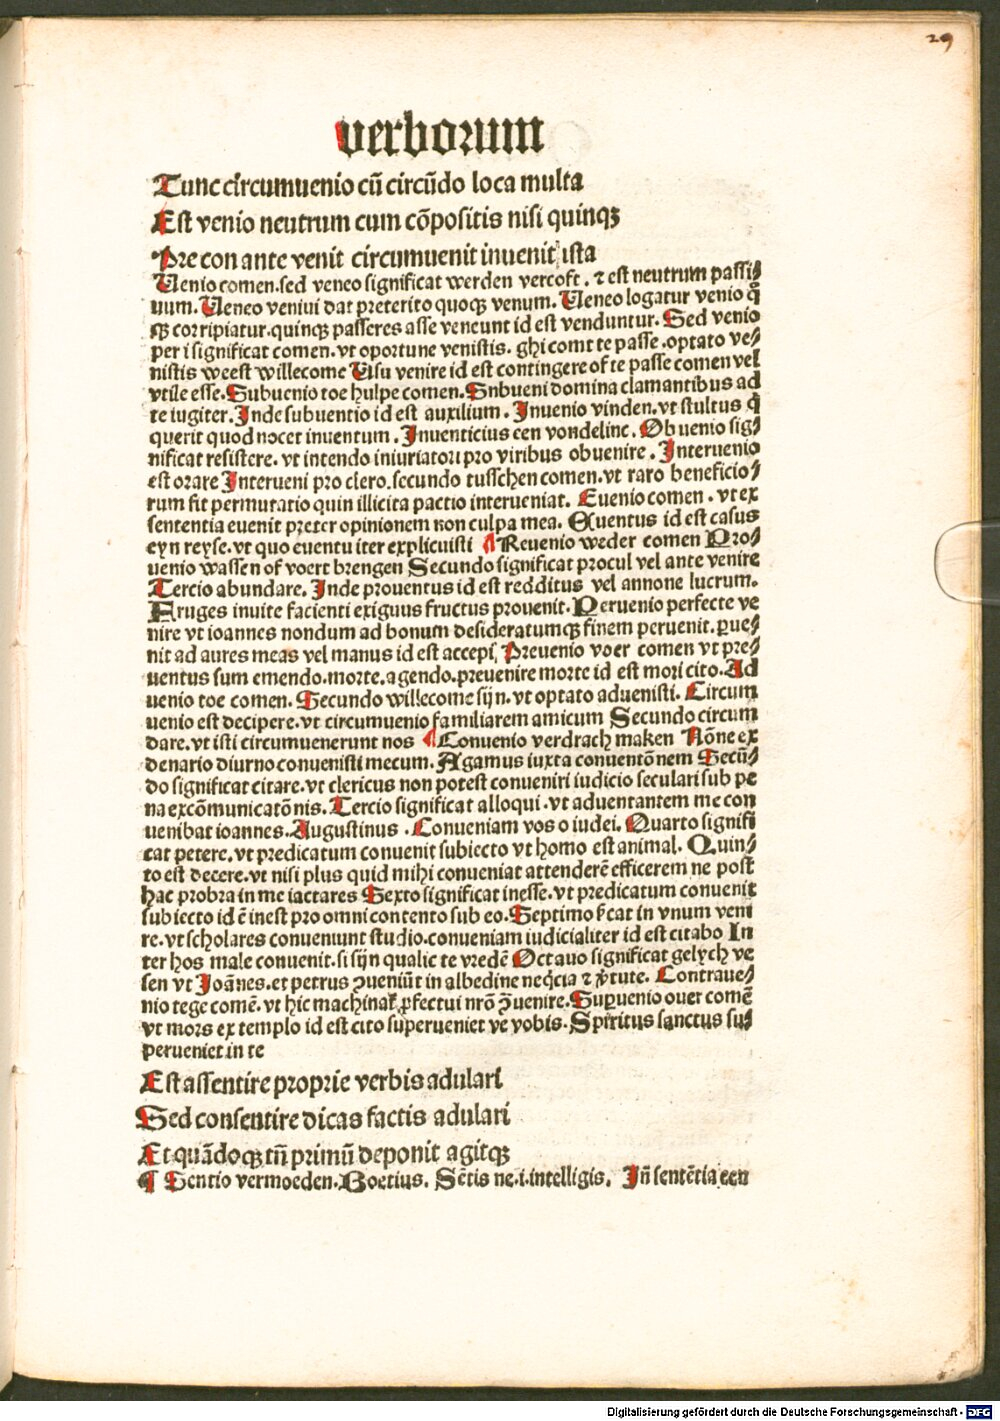 29
verborum
Tunc circumuenio cū circūdo loca multa
Est venio neutrum cum cōpositis nisi quinqꝫ
Pre con ante venit circumuenit inuenit ista
Uenio comen.sed veneo significat werden vercoft . ⁊ est neutrum passi⸗
uum. Ueneo veniui dat preterito quoqꝫ venum. Ueneo logatur venio q̄
qꝫ corripiatur.quinqꝫ passeres asse veneunt id est venduntur. Sed venio
per i significat comen.vt oportune venistis. ghi comt te passe .optato ve⸗
nistis weest willecome Usu venire id est contingere of te passe comen vel
vtile esse. Subuenio toe hulpe comen. Snbueni domina clamantibus ad
te iugiter. Inde subuentio id est auxilium . Inuenio vinden.vt stultus q̄
querit quod nocet inuentum . Inuenticius een vondelinc. Obuenio sig⸗
nificat resistere. vt intendo iniuriatori pro viribus obuenire . Interuenio
est orare Interueni pro clero.secundo tusschen comen.vt raro beneficio⸗
rum fit permutatio quin illicita pactio interueniat. Euenio comen . vt ex
sententia euenit preter opinionem non culpa mea. Euentus id est casus
eyn reyse.vt quo euentu iter explicuisti ¶ Reuenio weder comen Pro⸗
uenio wassen of voert brengen Secundo significat procul vel ante venire
Tercio abundare. Inde prouentus id est redditus vel annone lucrum.
Fruges inuite facienti exiguus fructus prouenit. Peruenio perfecte ve
nire vt ioannes nondum ad bonum desideratumqꝫ finem peruenit. ꝑue⸗
nit ad aures meas vel manus id est accepi, Preuenio voer comen vt pre⸗
uentus sum emendo.morte.agendo.preuenire morte id est mori cito. Ad
uenio toe comen. Secundo willecome sijn.vt optato aduenisti. Circum
uenio est decipere.vt circumuenio familiarem amicum Secundo circum
dare.vt isti circumuenerunt nos ¶ Conuenio verdrach maken Nōne ex
denario diurno conuenisti mecum. Agamus iuxta conuentōnem Secū⸗
do significat citare.vt clericus non potest conueniri iudicio seculari sub pe
na excōmunicatōnis. Tercio significat alloqui .vt aduentantem me con
uenibat ioannes. Augustinus . Conueniam vos o iudei. Quarto signifi
cat petere.vt predicatum conuenit subiecto vt homo est animal. Quin⸗
to est decere.vt nisi plus quid mihi conueniat attenderē efficerem ne post
hac probra in me iactares Sexto significat inesse.vt predicatum conuenit
subiecto id ē inest pro omni contento sub eo. Septimo ẜcat in vnum veni
re.vt scholares conueniunt studio.conueniam iudicialiter id est citabo In
ter hos male conuenit.si sijn qualic te vredē Octauo significat gelych we
sen vt Ioānes.et petrus ꝯueniūt in albedine neq̄cia ⁊ v̄tute. Contraue⸗
nio tege comē. vt hic machinaꝉ ꝓfectui nrō ꝯuenire. Suꝑuenio ouer comē
vt mors ex templo id est cito superueniet ve vobis. Spiritus sanctus su⸗
perueniet in te
Est assentire proprie verbis adulari
Sed consentire dicas factis adulari
Et quādoqꝫ tm̄ primū deponit agitqꝫ
¶ Sentio vermoeden. Boetius. Sētis ne.i.intelligis. Iñ sentētia een
Digitalisierung gefördert durch die Deutsche Forschungsgemeinschaft - DFG